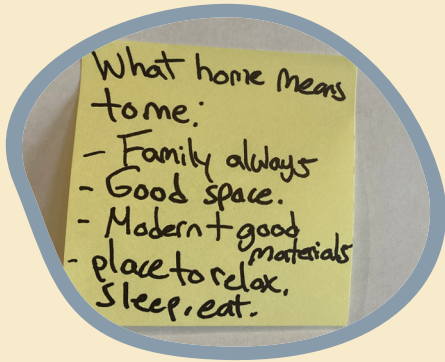 What home means
to me:
- Family always
- Good space.
- Modern + good
materials
- place to relax,
sleep, eat.